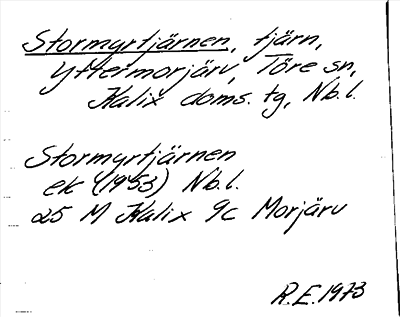 Stormyrtjärnen, tjärn,
Yttermorjärv, Töre sn,
Kalix doms. tg, Nb.l.
Stormyrtjärnen
ek (1953) Nb.l.
25 M Kalix 9c Morjärv
R.E. 1973